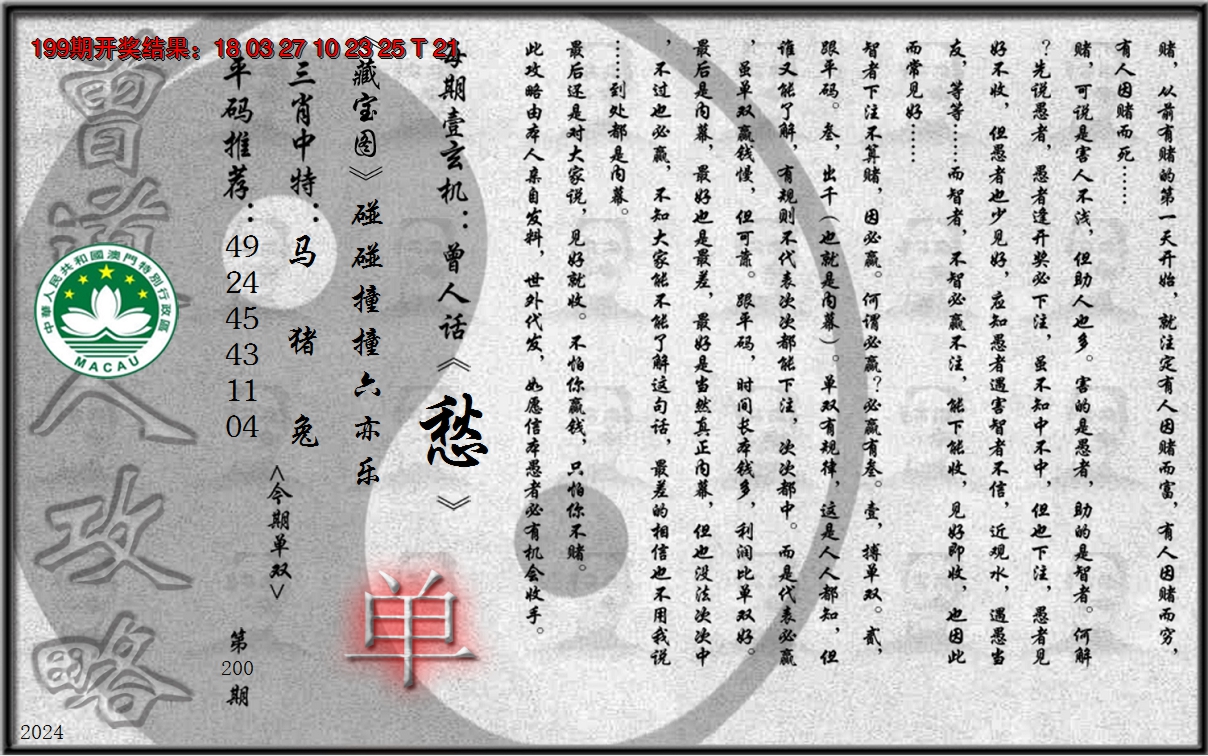 199期开奖结果：18 03 27 10 23 25 T 21
赌，从前有赌的第一天开始，就注定有人因赌而富，有人因赌而穷，
有人因赌而死……
赌，可说是害人不浅，但助人也多。害的是愚者，助的是智者。何解
？先说愚者，愚者逢开奖必下注，虽不知中不中，但也下注，愚者见
好不收，但愚者也少见好，应知愚者遇害智者不信，近观水，遇愚当
友，等等……而智者，不智必赢不注，能下能收，见好即收，也因此
而常见好……
智者下注不算赌，因必赢。何谓必赢？必赢有叁。壹，搏单双。贰，
跟平码。叁，出千（也就是内幕）。单双有规律，这是人人都知，但
谁又能了解，有规则不代表次次都能下注，次次都中。而是代表必赢
，虽单双赢钱慢，但可靠。跟平码，时间长本钱多，利润比单双好。
最后是内幕，最好也是最差，最好是当然真正内幕，但也没法次次中
，不过也必赢，不知大家能不能了解这句话，最差的相信也不用我说
……到处都是内幕。
最后还是对大家说，见好就收。不怕你赢钱，只怕你不赌。
此攻略由本人亲自发料，世外代发，如愿信本愚者必有机会收手。
每期壹玄机：曾人话《愁》
《藏宝图》碰碰撞撞六亦乐
单
三肖中特：马 猪 兔
<今期单双>
平码推荐：49 24 45 43 11 04
第200期
曾道人攻略
中華人民共和國澳門特別行政區
MACAU
2024